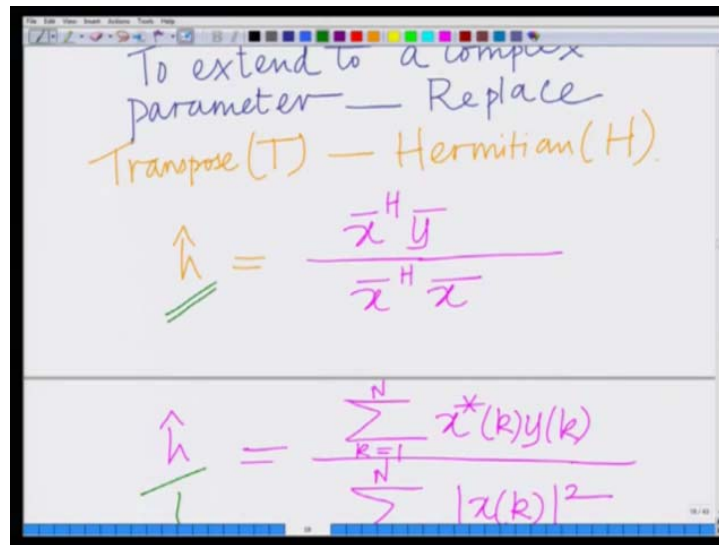 File Edit View Insert Actions Tools Help
To extend to a complex
parameter — Replace
Transpose(T) — Hermitian(H).
ĥ = x̄ᴴ ȳ / x̄ᴴ x̄
ĥ = ∑_{k=1}^{N} x*(k)y(k) / ∑^{N} |x(k)|²